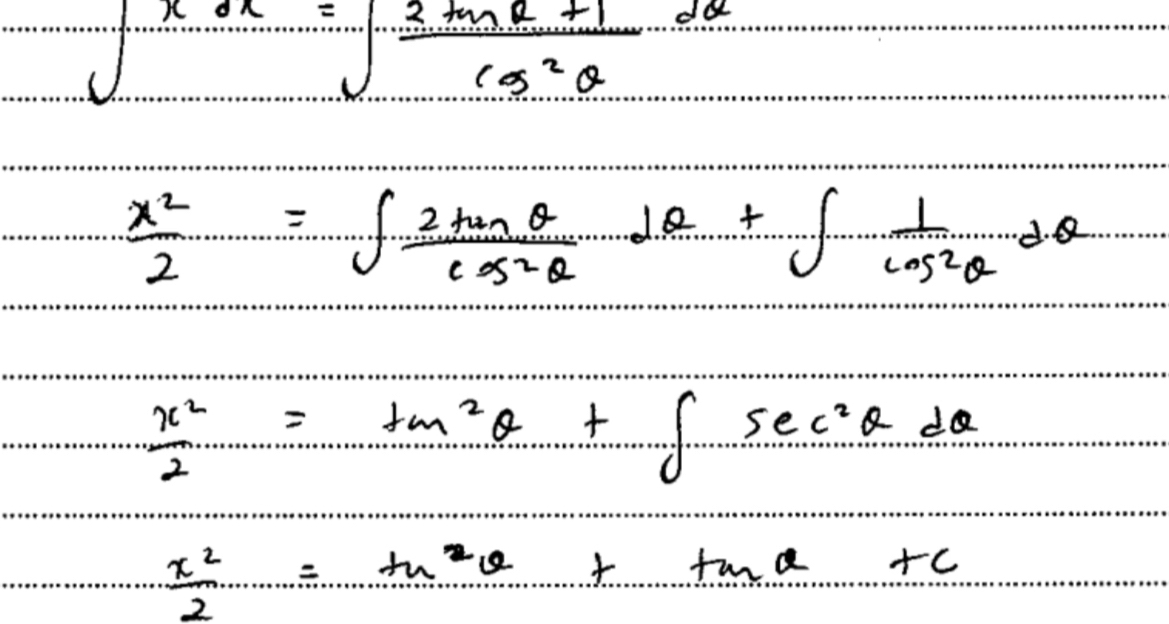 ∫ x dx = ∫ (2 tan θ + 1)/(cos² θ) dθ
x²/2 = ∫ (2 tan θ)/(cos² θ) dθ + ∫ 1/(cos² θ) dθ
x²/2 = tan² θ + ∫ sec² θ dθ
x²/2 = tan² θ + tan θ + c